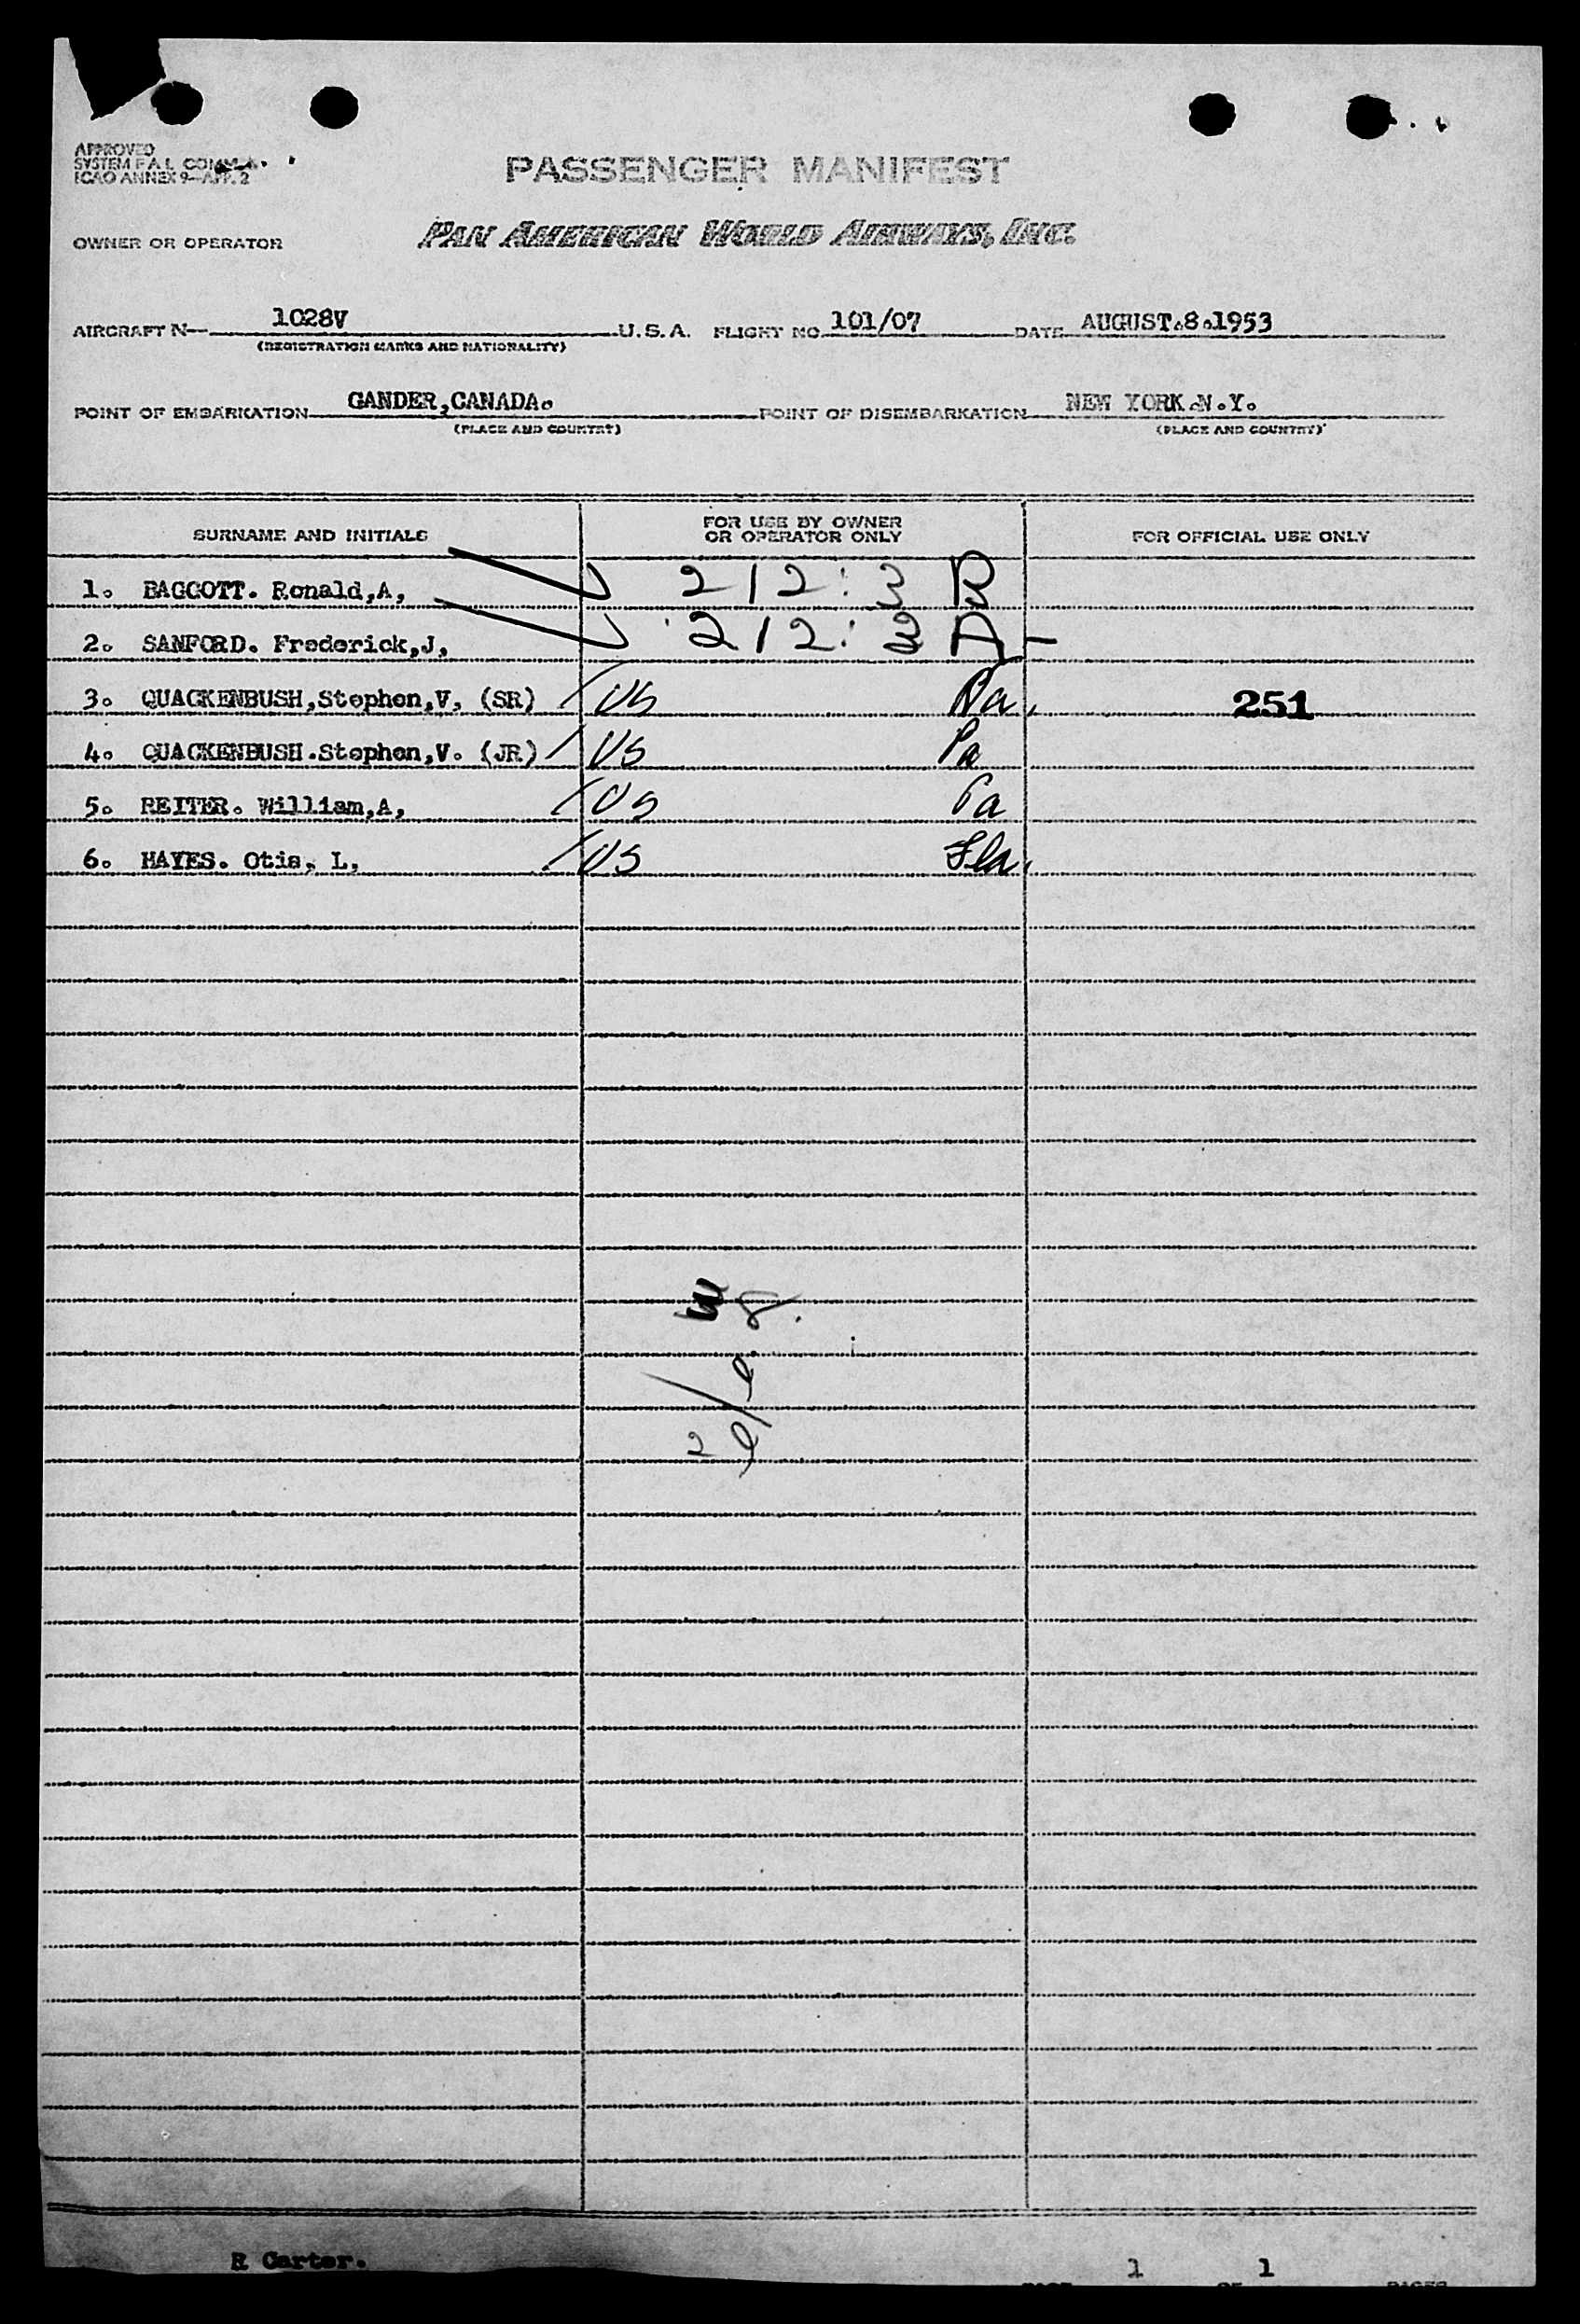 APPROVED
SYSTEM F.A.L. COMM.
ICAO ANNEX 9—APP. 2
PASSENGER MANIFEST
OWNER OR OPERATOR PAN AMERICAN WORLD AIRWAYS, INC.
AIRCRAFT N— 1028V U.S.A. FLIGHT NO. 101/07 DATE AUGUST.8.1953
(REGISTRATION MARKS AND NATIONALITY)
POINT OF EMBARKATION GANDER,CANADA. POINT OF DISEMBARKATION NEW YORK.N.Y.
(PLACE AND COUNTRY) (PLACE AND COUNTRY)
SURNAME AND INITIALS FOR USE BY OWNER OR OPERATOR ONLY FOR OFFICIAL USE ONLY
1. BAGGOTT. Ronald,A, 212:3 B
2. SANFORD. Frederick,J, 212: A
3. QUACKENBUSH,Stephen,V, (SR) US Pa. 251
4. QUACKENBUSH.Stephen,V. (JR) US Pa
5. REITER. William,A, US Pa
6. HAYES. Otis, L, US Fla.
R Carter.
PAGE 1 OF 1 PAGES